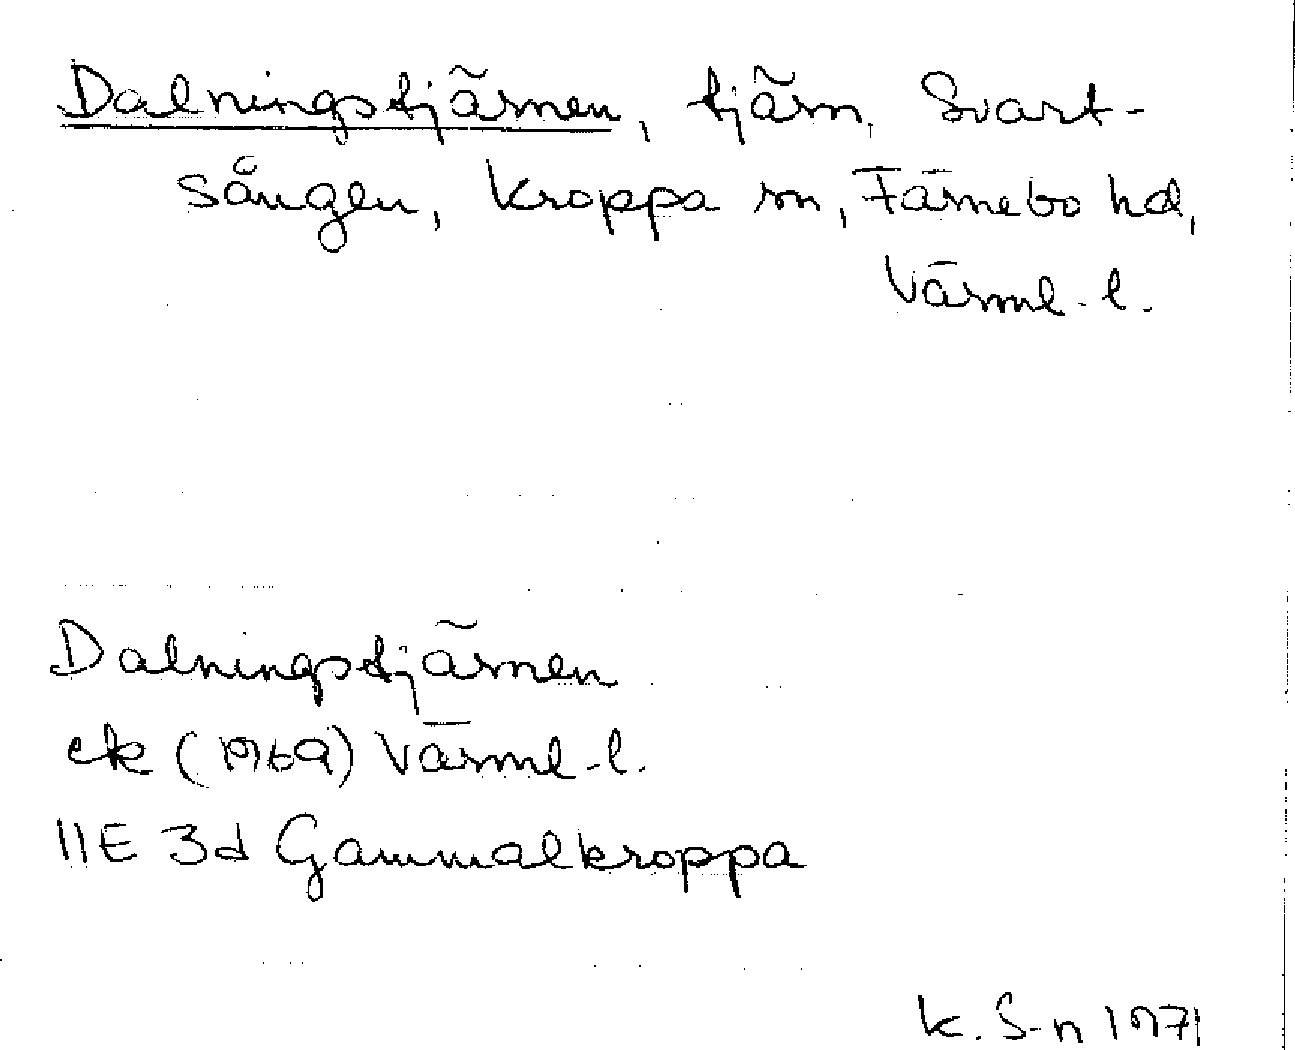 Dalningstjärnen, tjärn, Svart-
sången, Kroppa sn, Färnebo hd,
Värml. l.
Dalningstjärnen
ek (1969) Värml. l.
11E 3d Gammalkroppa
K. S-n 1971